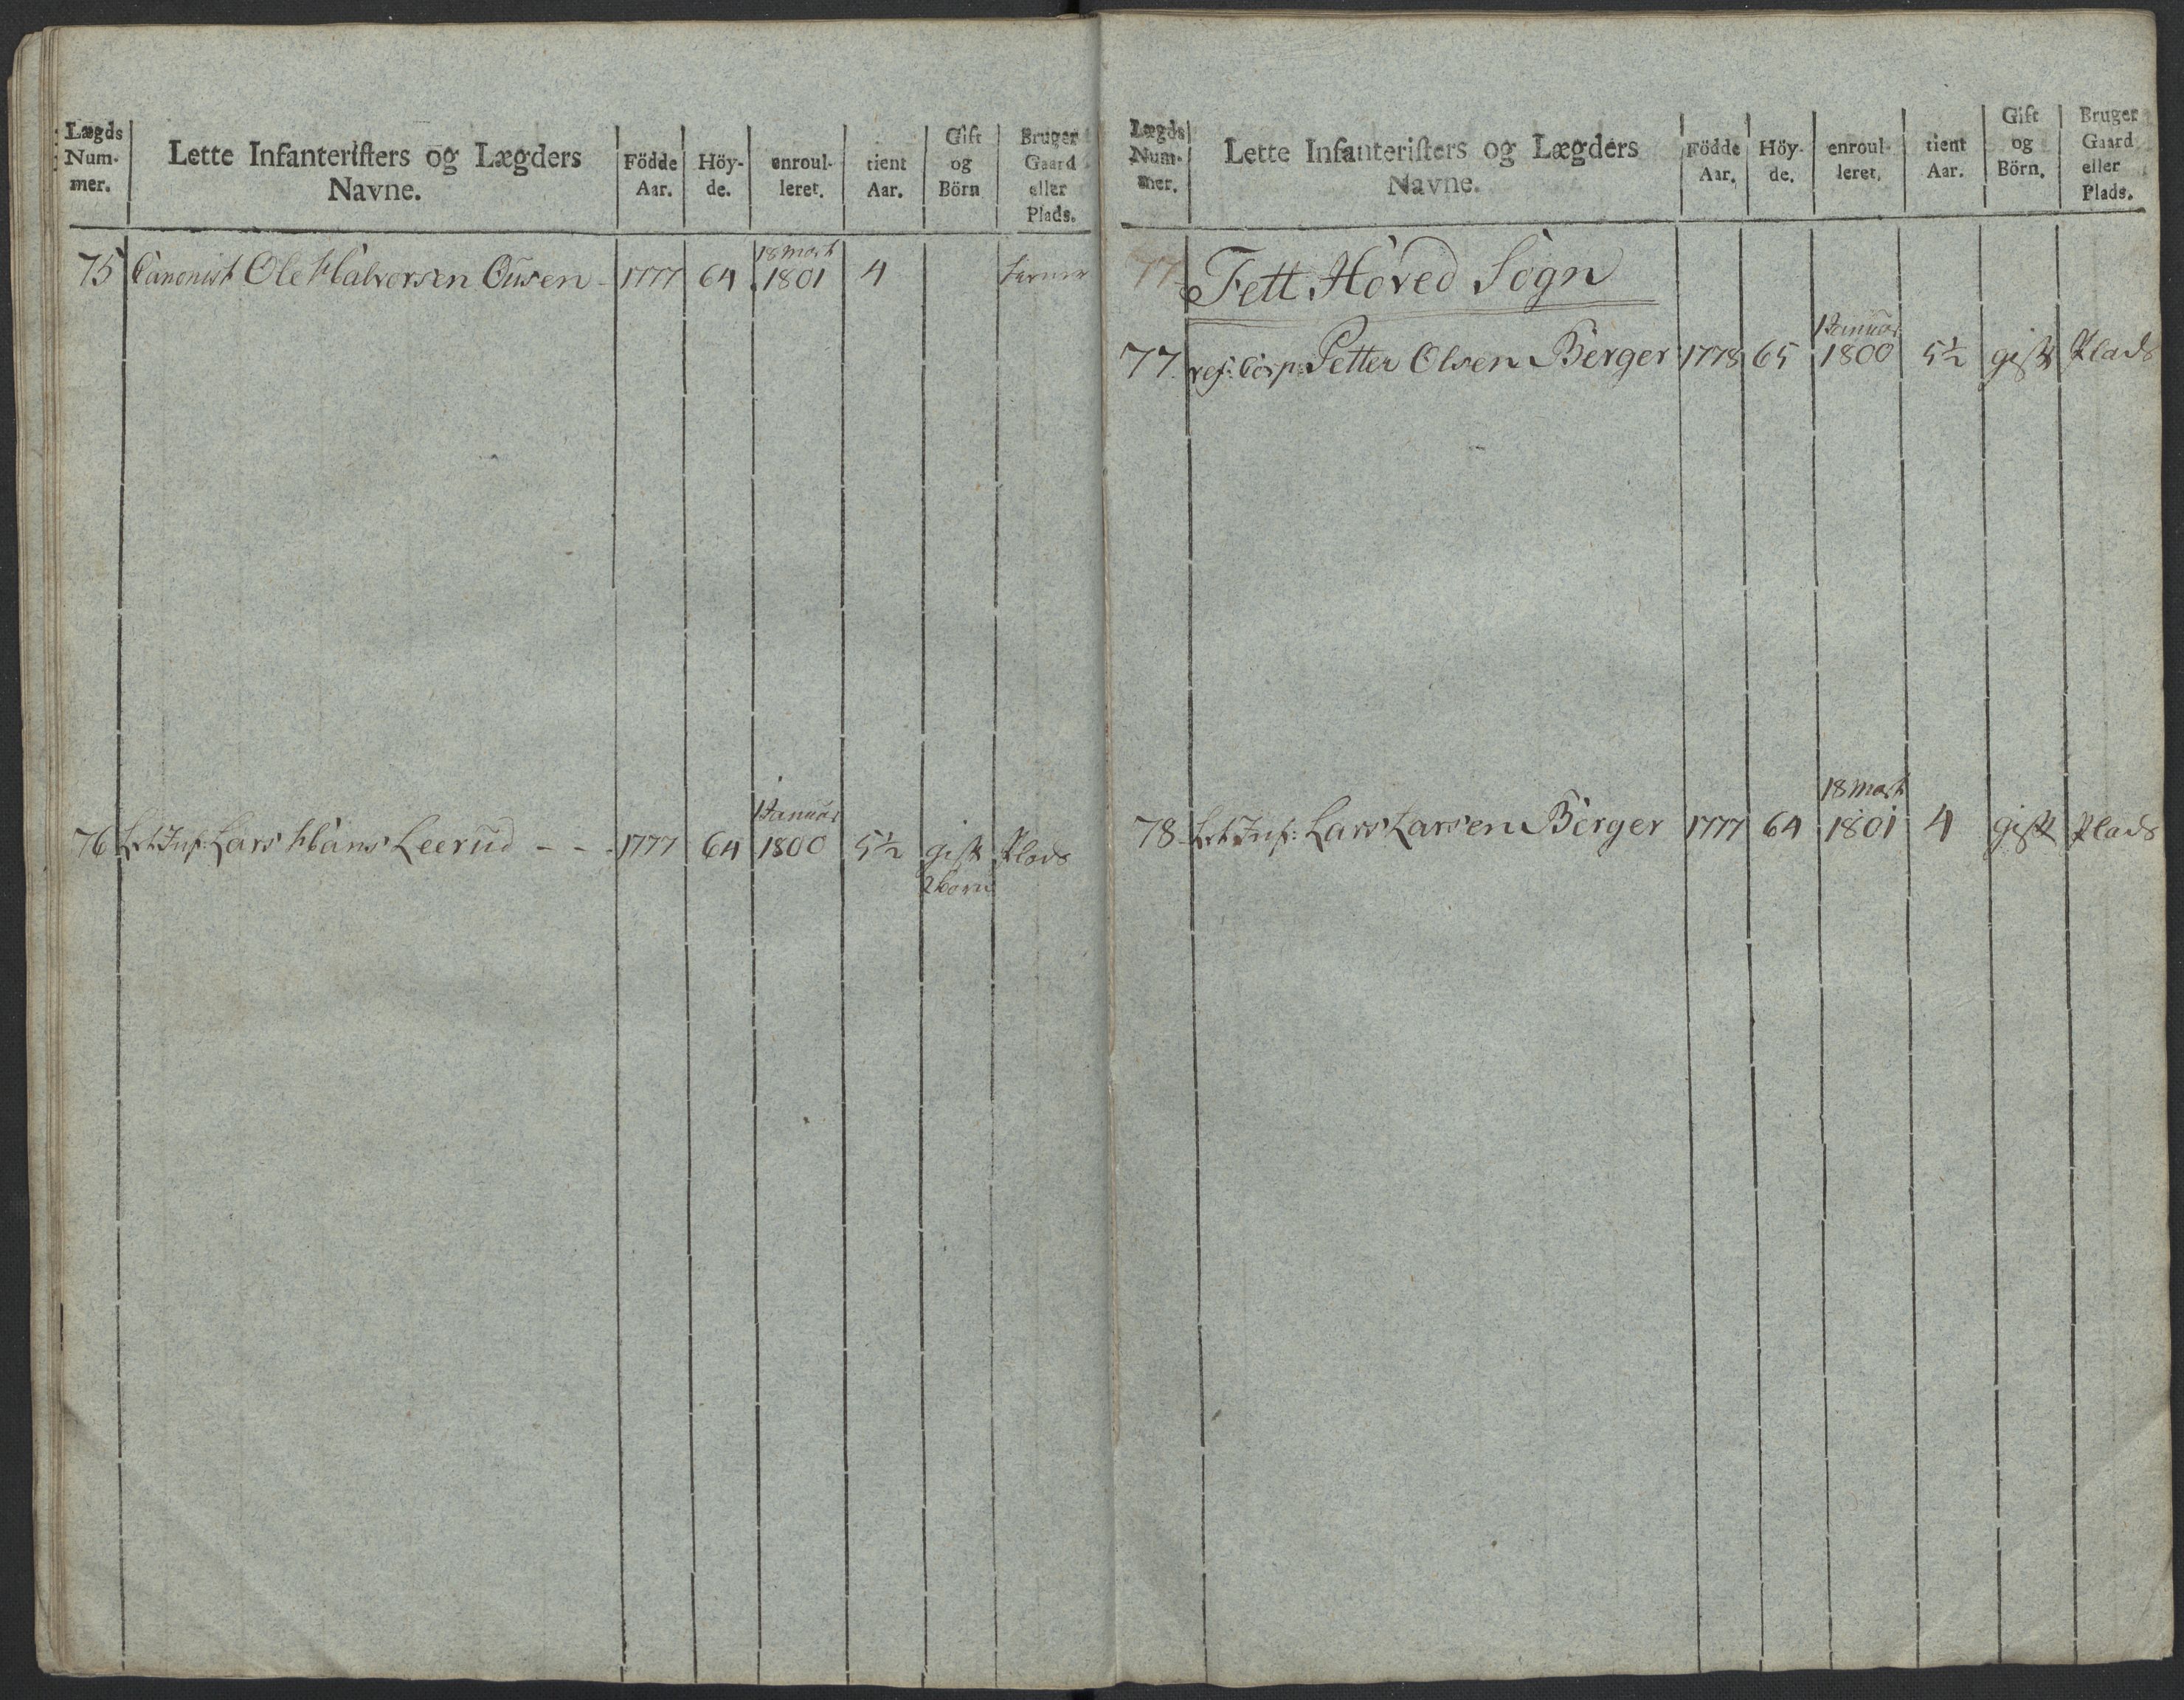 Lægds Num- mer. Lette Infanteriſters og Lægders Navne. Födde Aar. Höy- de. enroul- leret. tient Aar. Gift og Börn Bruger Gaard eller Plads.
18 Mart
75 Canonist Ole Halvorsen Ousen - 1777 64 1801 4
1 Januar
76 Let Inf: Lars Hans Leerud - - - 1777 64 1800 5½ gift Plads
2 børn
Lægds Num- mer. Lette Infanteriſters og Lægders Navne. Födde Aar. Höy- de. enroul- leret. tient Aar. Gift og Börn. Bruger Gaard eller Plads.
77 Fett Hoved Sogn
1 Januar
77. ref: Corp: Petter Olsen Berger 1778 65 1800 5½ gift Plads
18 Mart
78 Let Inf: Lars Larsen Berger 1777 64 1801 4 gift Plads